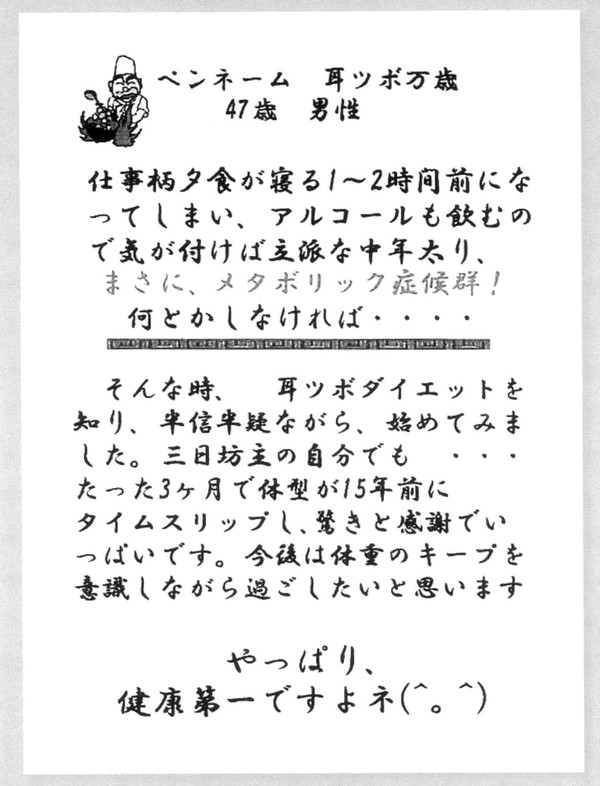 ペンネーム　耳ツボ万歳
47歳　男性
仕事柄夕食が寝る1～2時間前にな
ってしまい、アルコールも飲むの
で気が付けば立派な中年太り、
まさに、メタボリック症候群！
何とかしなければ・・・・
そんな時、　耳ツボダイエットを
知り、半信半疑ながら、始めてみま
した。三日坊主の自分でも　・・・
たった3ヶ月で体型が15年前に
タイムスリップし、驚きと感謝でい
っぱいです。今後は体重のキープを
意識しながら過ごしたいと思います
やっぱり、
健康第一ですよネ(^。^)